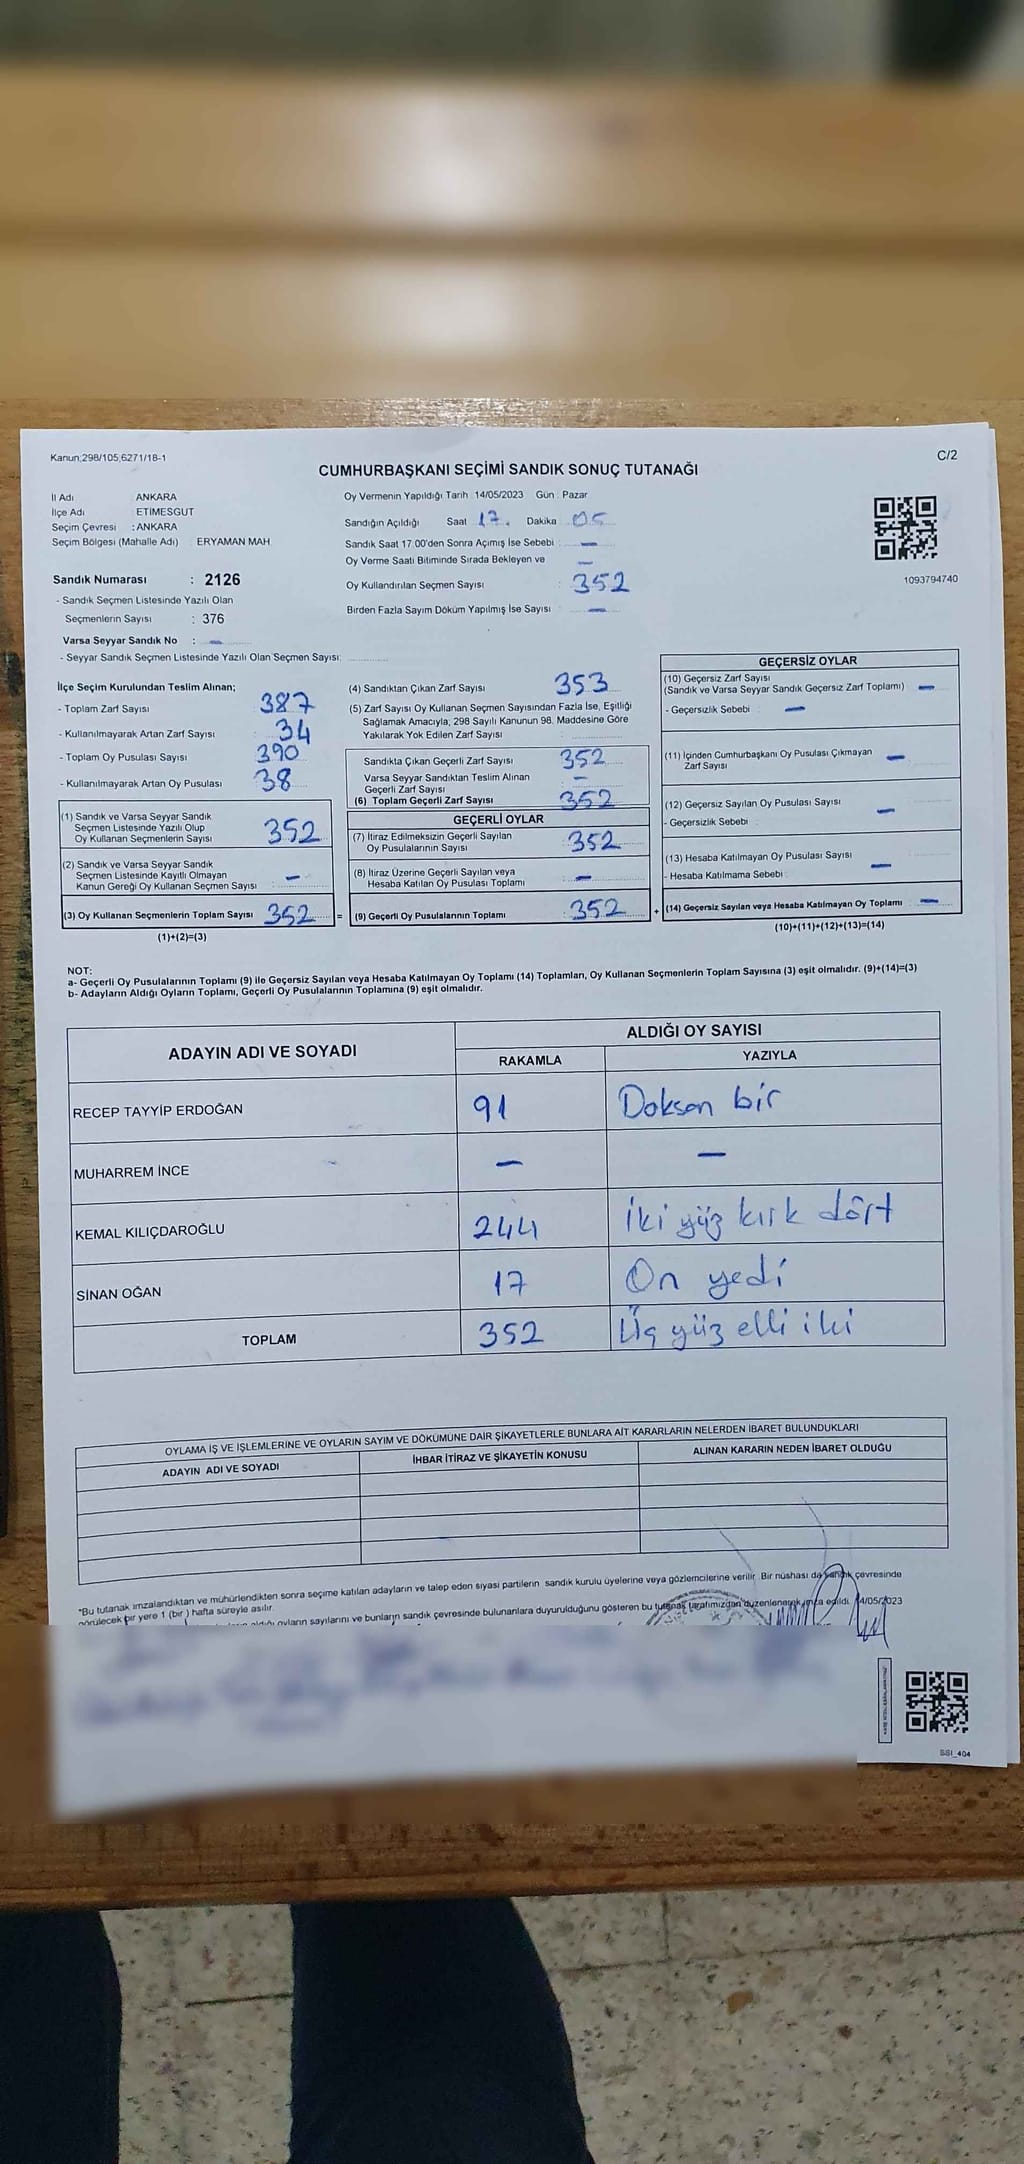 Kanun;298/105,6271/18-1
C/2
CUMHURBAŞKANI SEÇİMİ SANDIK SONUÇ TUTANAĞI
İl Adı ANKARA
İlçe Adı ETİMESGUT
Seçim Çevresi : ANKARA
Seçim Bölgesi (Mahalle Adı) ERYAMAN MAH.
Oy Vermenin Yapıldığı Tarih 14/05/2023 Gün : Pazar
Sandığın Açıldığı Saat 17. Dakika 05
Sandık Saat 17.00'den Sonra Açımış İse Sebebi : —
Oy Verme Saati Bitiminde Sırada Bekleyen ve —
Oy Kullandırılan Seçmen Sayısı : 352
Birden Fazla Sayım Döküm Yapılmış İse Sayısı : —
1093794740
Sandık Numarası : 2126
- Sandık Seçmen Listesinde Yazılı Olan
Seçmenlerin Sayısı : 376
Varsa Seyyar Sandık No : —
- Seyyar Sandık Seçmen Listesinde Yazılı Olan Seçmen Sayısı:
İlçe Seçim Kurulundan Teslim Alınan;
- Toplam Zarf Sayısı 387
- Kullanılmayarak Artan Zarf Sayısı : 34
- Toplam Oy Pusulası Sayısı 390
- Kullanılmayarak Artan Oy Pusulası : 38
(1) Sandık ve Varsa Seyyar Sandık
Seçmen Listesinde Yazılı Olup
Oy Kullanan Seçmenlerin Sayısı : 352
(2) Sandık ve Varsa Seyyar Sandık
Seçmen Listesinde Kayıtlı Olmayan
Kanun Gereği Oy Kullanan Seçmen Sayısı : —
(3) Oy Kullanan Seçmenlerin Toplam Sayısı 352 =
(1)+(2)=(3)
(4) Sandıktan Çıkan Zarf Sayısı 353
(5) Zarf Sayısı Oy Kullanan Seçmen Sayısından Fazla İse, Eşitliği
Sağlamak Amacıyla; 298 Sayılı Kanunun 98. Maddesine Göre
Yakılarak Yok Edilen Zarf Sayısı
Sandıkta Çıkan Geçerli Zarf Sayısı 352
Varsa Seyyar Sandıktan Teslim Alınan
Geçerli Zarf Sayısı —
(6) Toplam Geçerli Zarf Sayısı 352
GEÇERLİ OYLAR
(7) İtiraz Edilmeksizin Geçerli Sayılan
Oy Pusulalarının Sayısı : 352
(8) İtiraz Üzerine Geçerli Sayılan veya
Hesaba Katılan Oy Pusulası Toplamı : —
(9) Geçerli Oy Pusulalarının Toplamı : 352 +
GEÇERSİZ OYLAR
(10) Geçersiz Zarf Sayısı
(Sandık ve Varsa Seyyar Sandık Geçersiz Zarf Toplamı) —
- Geçersizlik Sebebi : —
(11) İçinden Cumhurbaşkanı Oy Pusulası Çıkmayan
Zarf Sayısı —
(12) Geçersiz Sayılan Oy Pusulası Sayısı —
- Geçersizlik Sebebi :
(13) Hesaba Katılmayan Oy Pusulası Sayısı —
- Hesaba Katılmama Sebebi :
(14) Geçersiz Sayılan veya Hesaba Katılmayan Oy Toplamı —
(10)+(11)+(12)+(13)=(14)
NOT:
a- Geçerli Oy Pusulalarının Toplamı (9) ile Geçersiz Sayılan veya Hesaba Katılmayan Oy Toplamı (14) Toplamları, Oy Kullanan Seçmenlerin Toplam Sayısına (3) eşit olmalıdır. (9)+(14)=(3)
b- Adayların Aldığı Oyların Toplamı, Geçerli Oy Pusulalarının Toplamına (9) eşit olmalıdır.
ADAYIN ADI VE SOYADI
ALDIĞI OY SAYISI
RAKAMLA YAZIYLA
RECEP TAYYİP ERDOĞAN 91 Doksan bir
MUHARREM İNCE — —
KEMAL KILIÇDAROĞLU 244 İki yüz kırk dört
SİNAN OĞAN 17 On yedi
TOPLAM 352 Üç yüz elli iki
OYLAMA İŞ VE İŞLEMLERİNE VE OYLARIN SAYIM VE DÖKÜMÜNE DAİR ŞİKAYETLERLE BUNLARA AİT KARARLARIN NELERDEN İBARET BULUNDUKLARI
ADAYIN ADI VE SOYADI İHBAR İTİRAZ VE ŞİKAYETİN KONUSU ALINAN KARARIN NEDEN İBARET OLDUĞU
*Bu tutanak imzalandıktan ve mühürlendikten sonra seçime katılan adayların ve talep eden siyasi partilerin sandık kurulu üyelerine veya gözlemcilerine verilir. Bir nüshası da sandık çevresinde
görülecek bir yere 1 (bir) hafta süreyle asılır.
oyların sayılarını ve bunların sandık çevresinde bulunanlara duyurulduğunu gösteren bu tutanak tarafımızdan düzenlenerek imza edildi. 14/05/2023
SSI_404